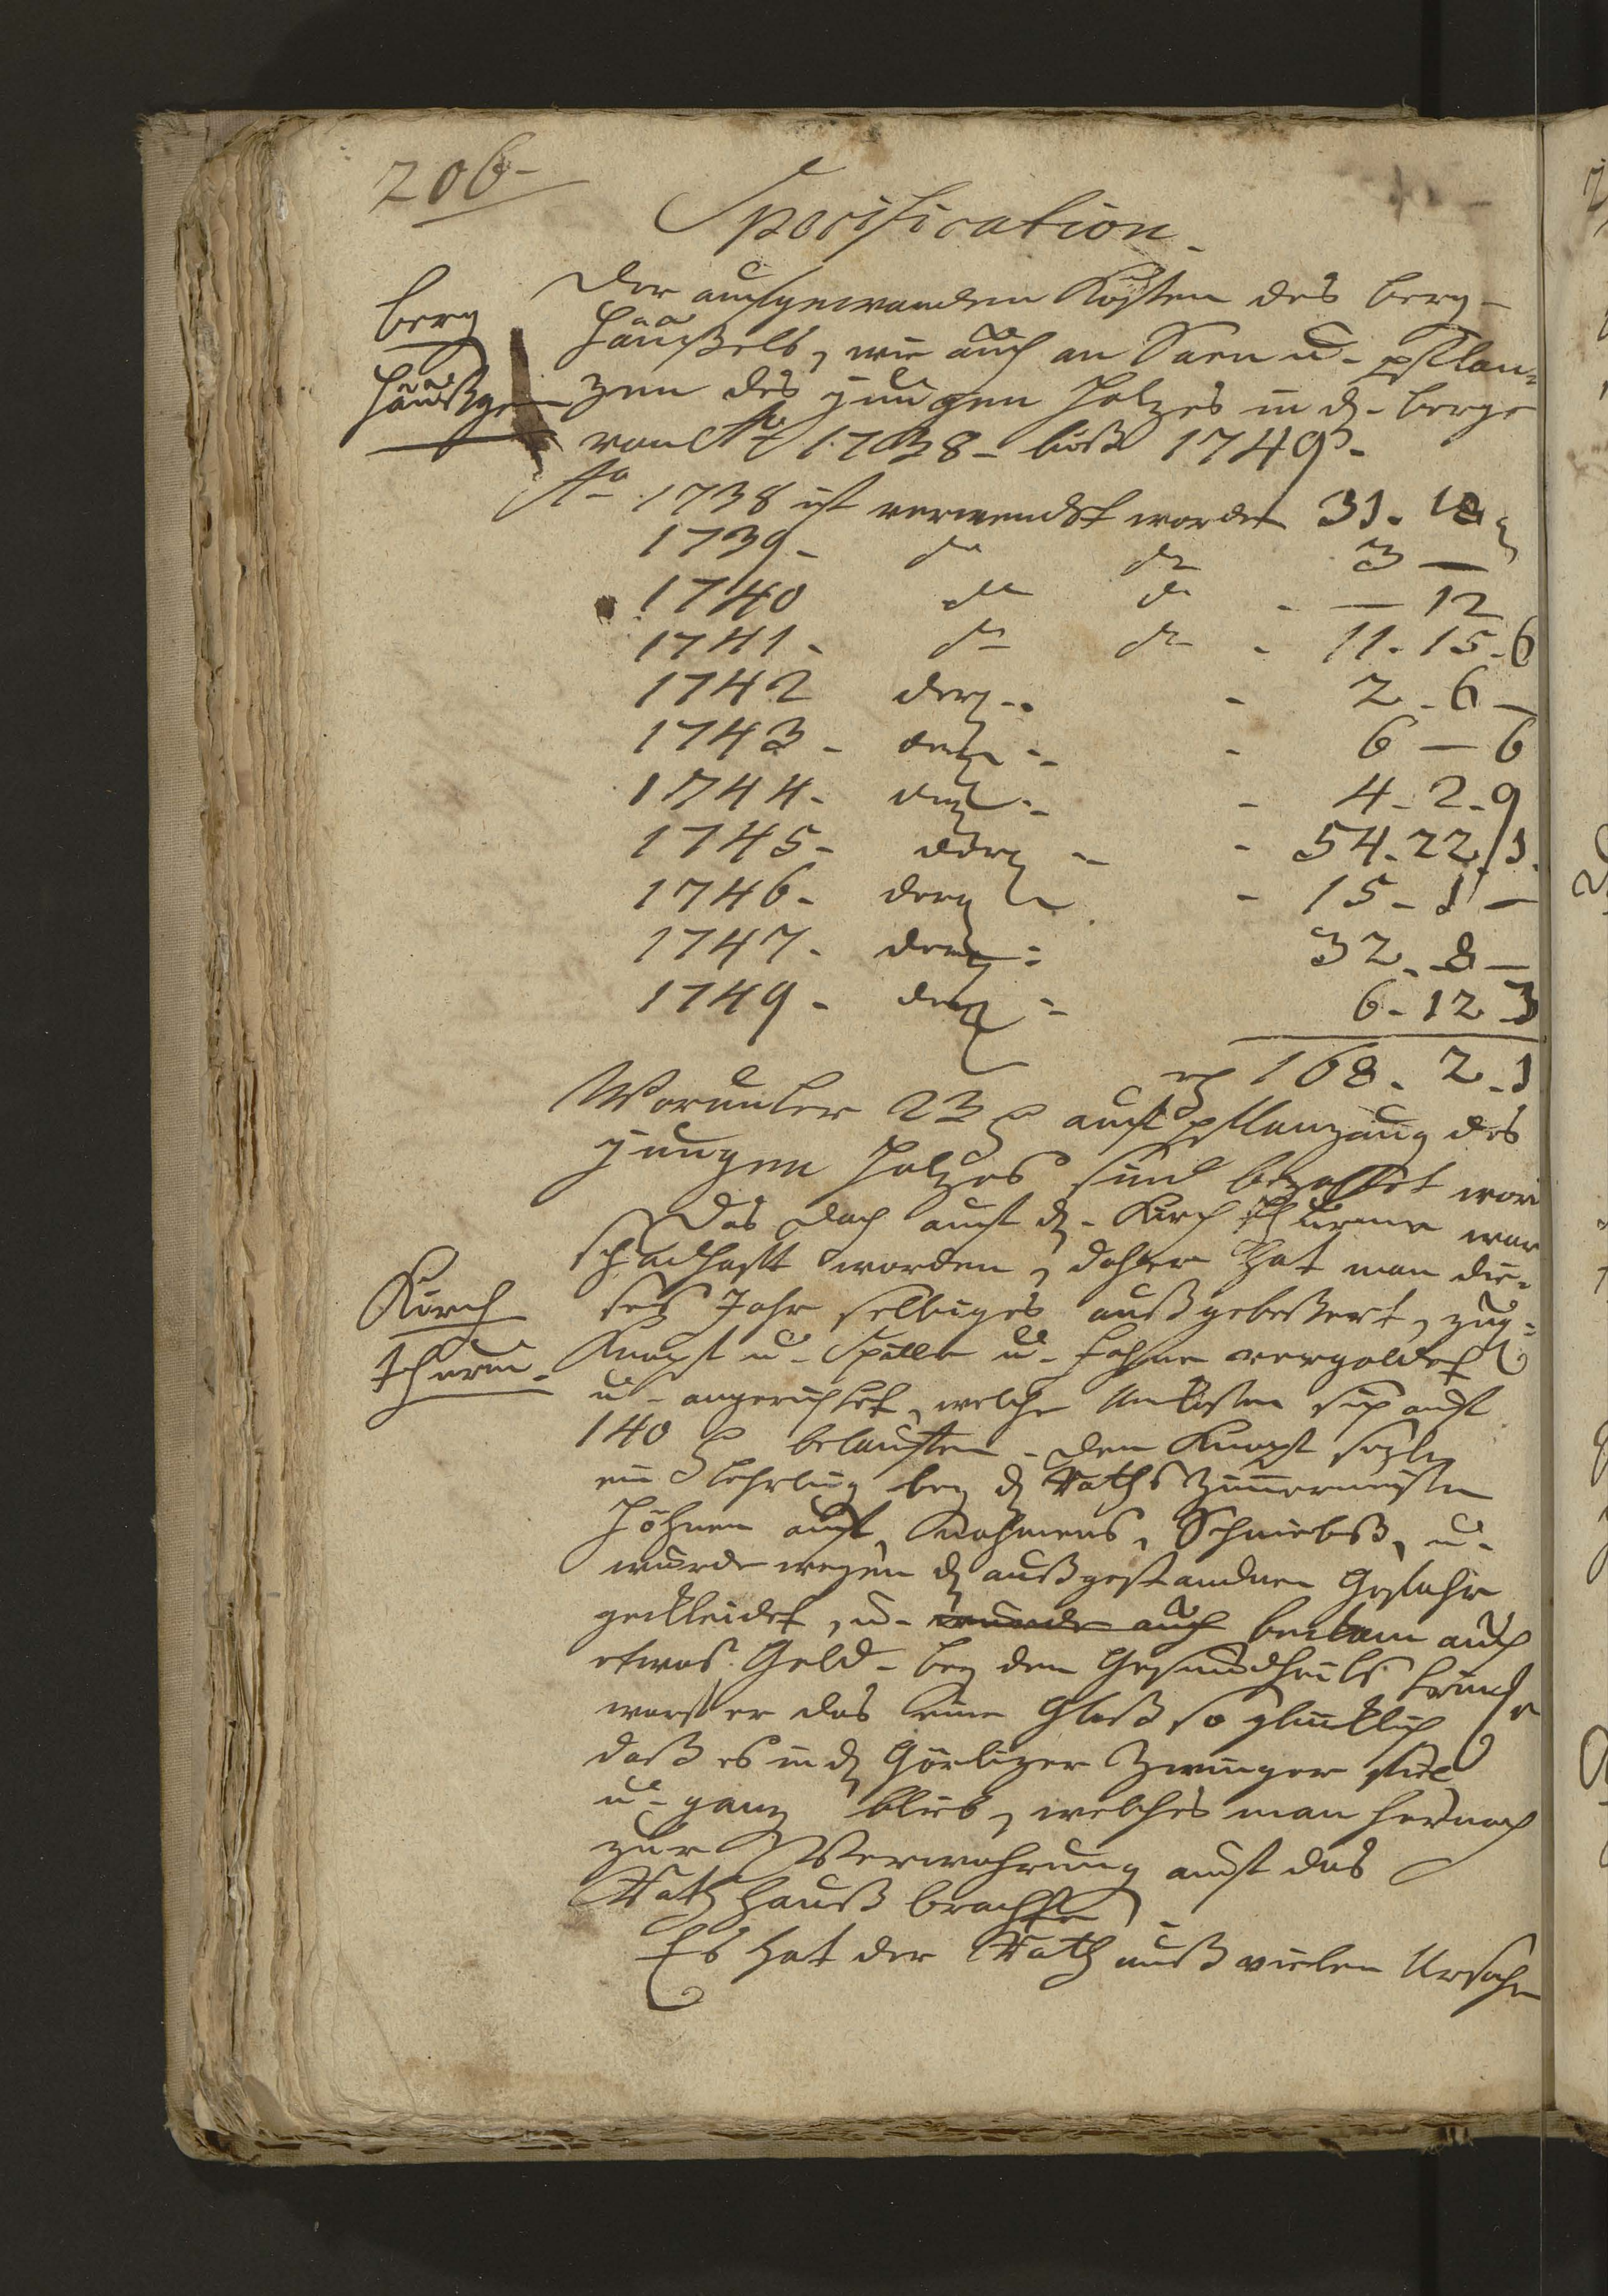 206-
Specification.
Berg
Häußgen
der aufgewanden Kosten des Berg-
Häußels, wie auch an Säen u. pflan=
zen des jungen Holzes in d. Berge
von Ao 1738 - biß 1749.
Ao 1738 ist verwendet worden 31. 18
1739 - do do 3 —
1740 do do - — 12
1741 - do do - 11. 15. 6
1742 derg. - 2. 6 —
1743 - derg. - 6 — 6
1744 - derg. - 4. 2. 9
1745 - derg. - 54. 22. 1.
1746 - derg. - 15. 1 —
1747 - derg. 32. 8 —
1749 - derg. 6. 12 3
rh 168. 2. 1
Worunter 23 auf pflanzung des
jungen Holzes sind bezahlet word
Das Dach auf d. Kirch thurme war
schadhafft worden, daher hat man die=
Kirch
thurm.
ses Jahr selbiges außgebeßert, zug=
Knopf u. Spille u. Fahne vergoldet
u. angerichtet, welche Unkosten sich auf
140 belauffen. Den Knopf sezte
ein Lehrling bey d. Raths Zimmermeister
Höhnen auf, Nahmens, Schniebß, u.
wurde wegen d. außgestandnen Gefahr
gekleidet, u. wurde auch beckam auch
etwas Geld. Bey dem Gesundheits trincken
warf er das eine Glaß so glücklich
daß es in d. Görlizer Zwinger fiel
u. ganz blieb, welches man hernach
zur Verwahrung auf das
Rathhauß brachte
Es hat der Rath auß vielen Ursachen